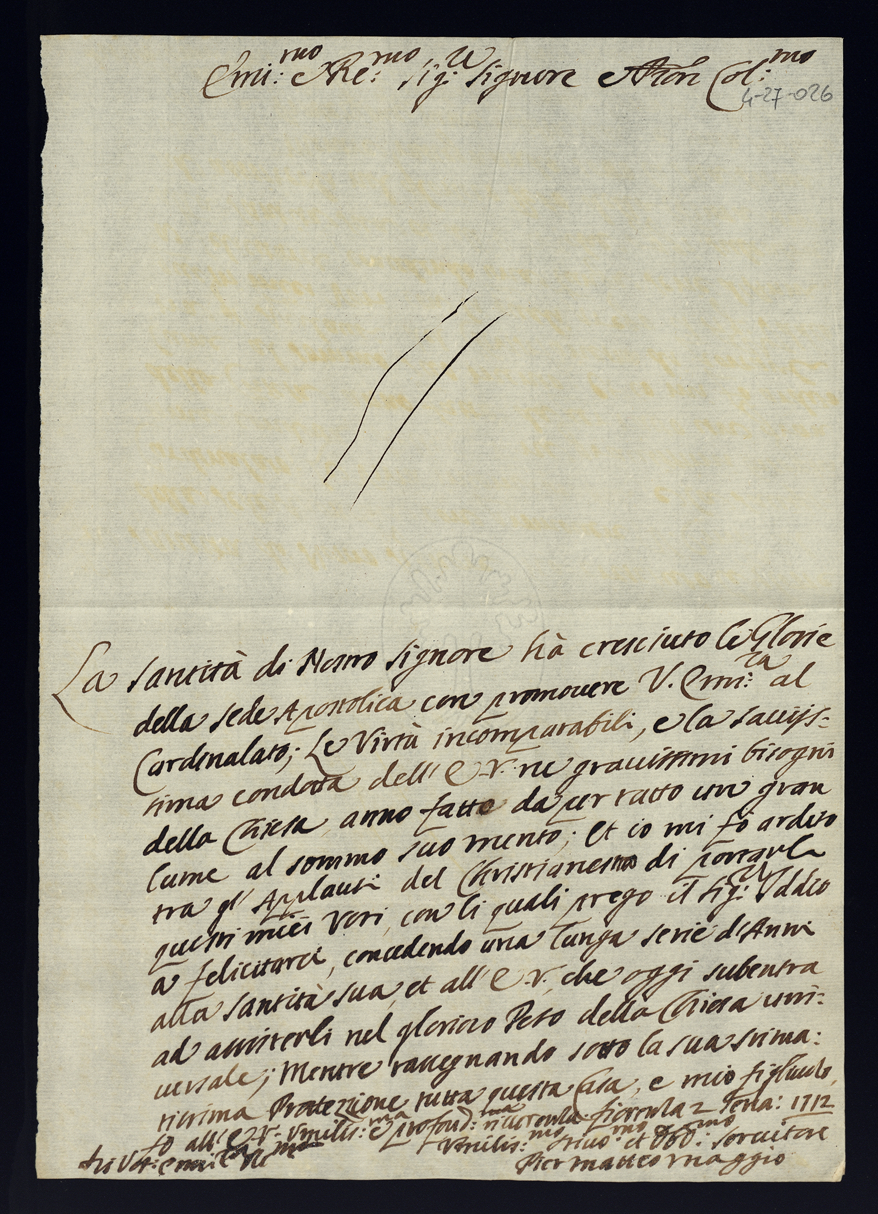 Emi:mo e Re:mo Sig:re Signore e Pron Col:mo
4-27-026
La Santità di Nostro Signore hà cresciuto le Glorie
della Sede Apostolica con promouere V. Emi:za al
Cardenalato; Le Virtù incomparabili, e la sauijs-
sima condotta dell' E.V. ne grauissimi bisogni
della Chiesa, anno fatto da per tutto un gran
lume al sommo suo merito; Et io mi fò ardito
tra gl' Applausi del Christianesmo di portarle
questi miei Voti, con li quali prego il Sig:re Iddio
a felicitarci, concedendo una lunga serie d'Anni
alla Santità sua, et all' E.V., che oggi subentra
ad assisterli nel glorioso Peso della Chiesa uni:
uersale; Mentre rassegnando sotto la sua stima:
tissima Protezzione tutta questa Casa, e mio figliuolo,
fò all' E.V. Vmilis:ma e profond:ma riuerenza 2 1712
Di V: Emi:za Re:ma
Vmilis:mo Diuo:mo et Obb:mo Seruitore
Pier Matteo Maggio